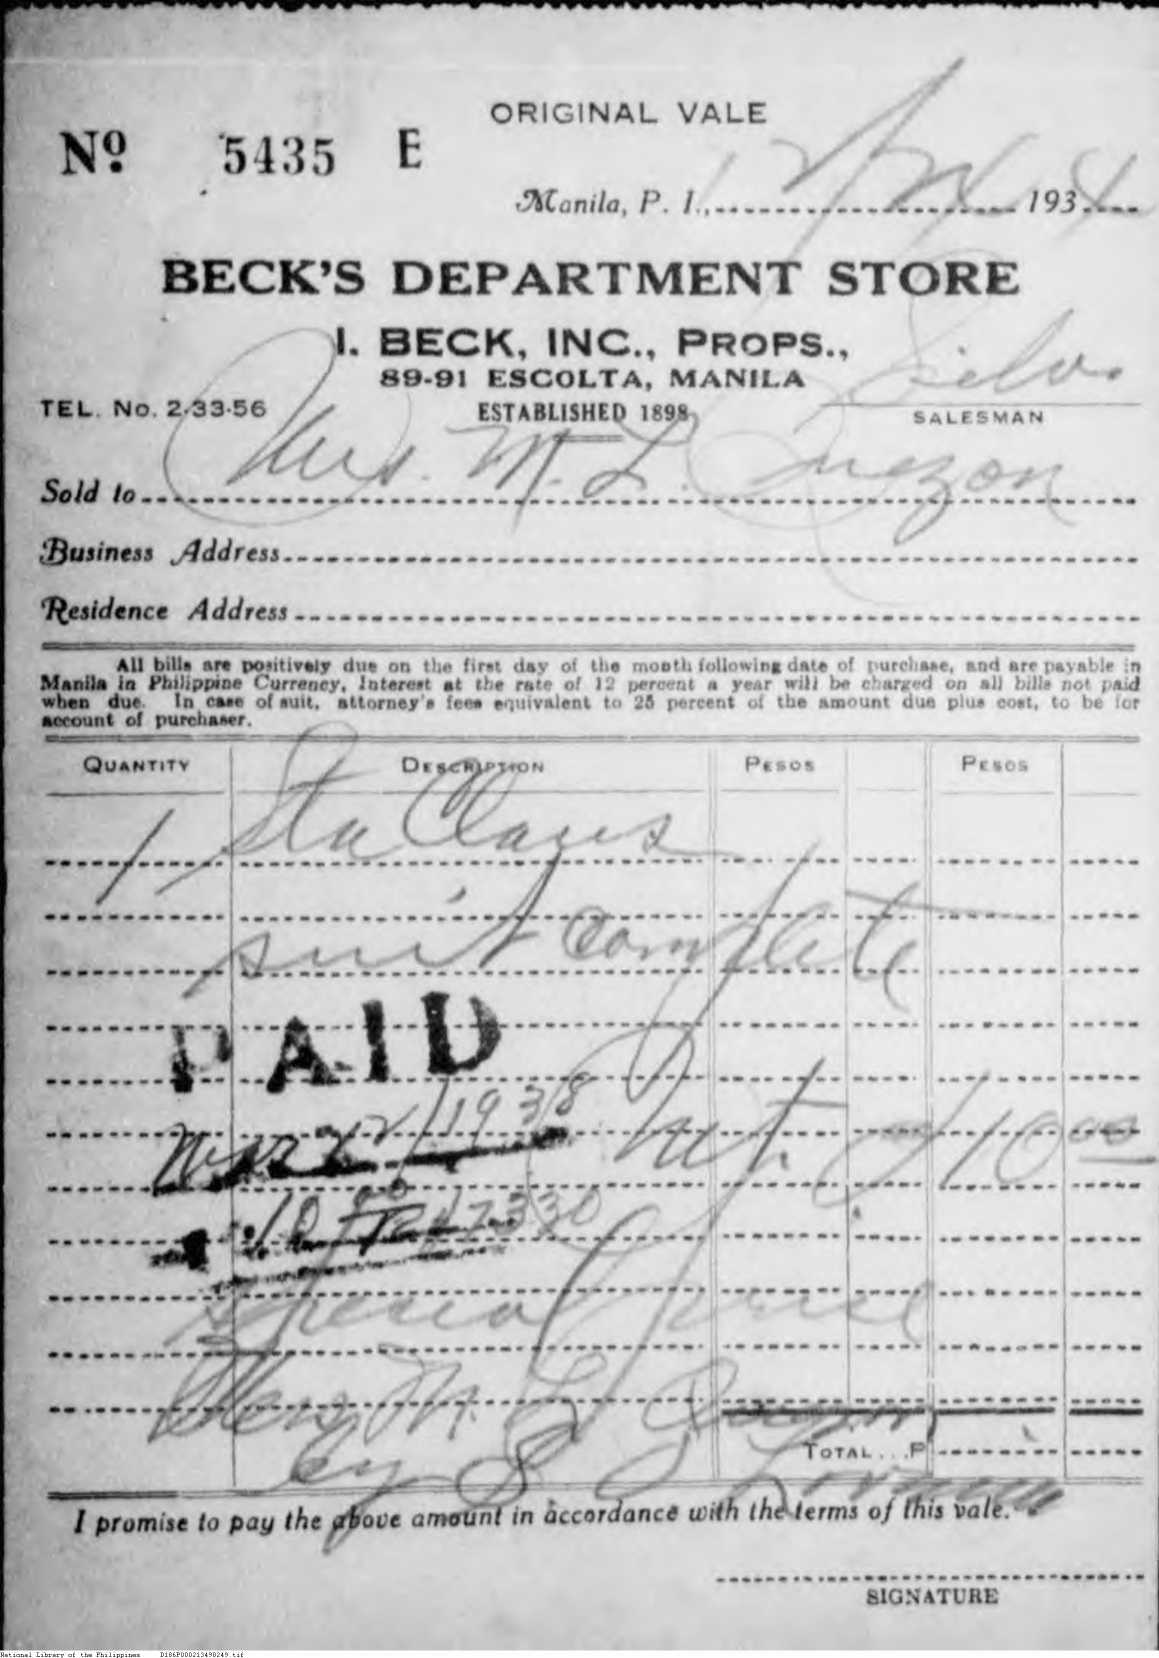 ORIGINAL VALE
Nº 5435 E
Manila, P. I., 12/24 1934
BECK'S DEPARTMENT STORE
I. BECK, INC., PROPS.,
89-91 ESCOLTA, MANILA
TEL. No. 2-33-56 ESTABLISHED 1898 SALESMAN
Sold to Mrs. M. L. Quezon
Business Address
Residence Address
All bills are positively due on the first day of the month following date of purchase, and are payable in
Manila in Philippine Currency, Interest at the rate of 12 percent a year will be charged on all bills not paid
when due. In case of suit, attorney's fees equivalent to 25 percent of the amount due plus cost, to be for
account of purchaser.
QUANTITY DESCRIPTION PESOS PESOS
1 Sta Claus
suit complete
PAID
1938
Net. 10 00
Special Price
Mrs M. L. Quezon
by
TOTAL...P
I promise to pay the above amount in accordance with the terms of this vale.
SIGNATURE
National Library of the Philippines D186P000213490249.tif